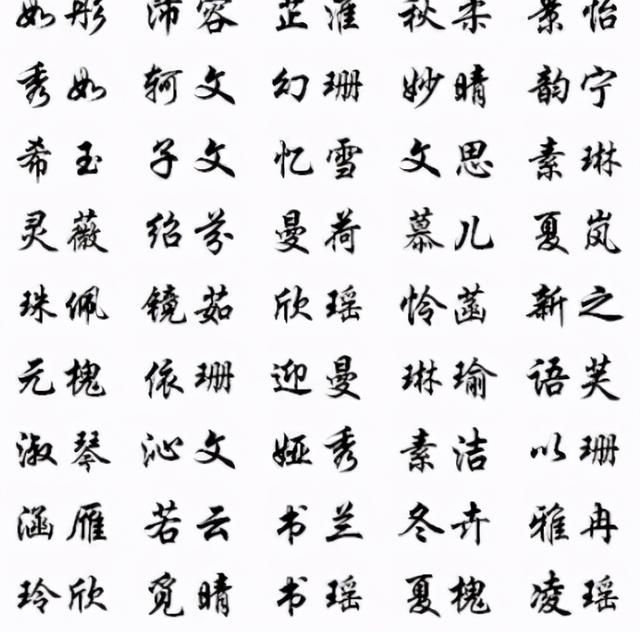 如彤 沛容 芷淮 秋柔 景怡
秀如 轲文 幻珊 妙晴 韵宁
希玉 子文 忆雪 文思 素琳
灵薇 绍芬 曼荷 慕儿 夏岚
珠佩 镜茹 欣瑶 怜菡 新之
元槐 依珊 迎曼 琳瑜 语芙
淑琴 沁文 娅秀 素洁 以珊
涵雁 若云 书兰 冬卉 雅冉
玲欣 觅晴 书瑶 夏槐 凌瑶